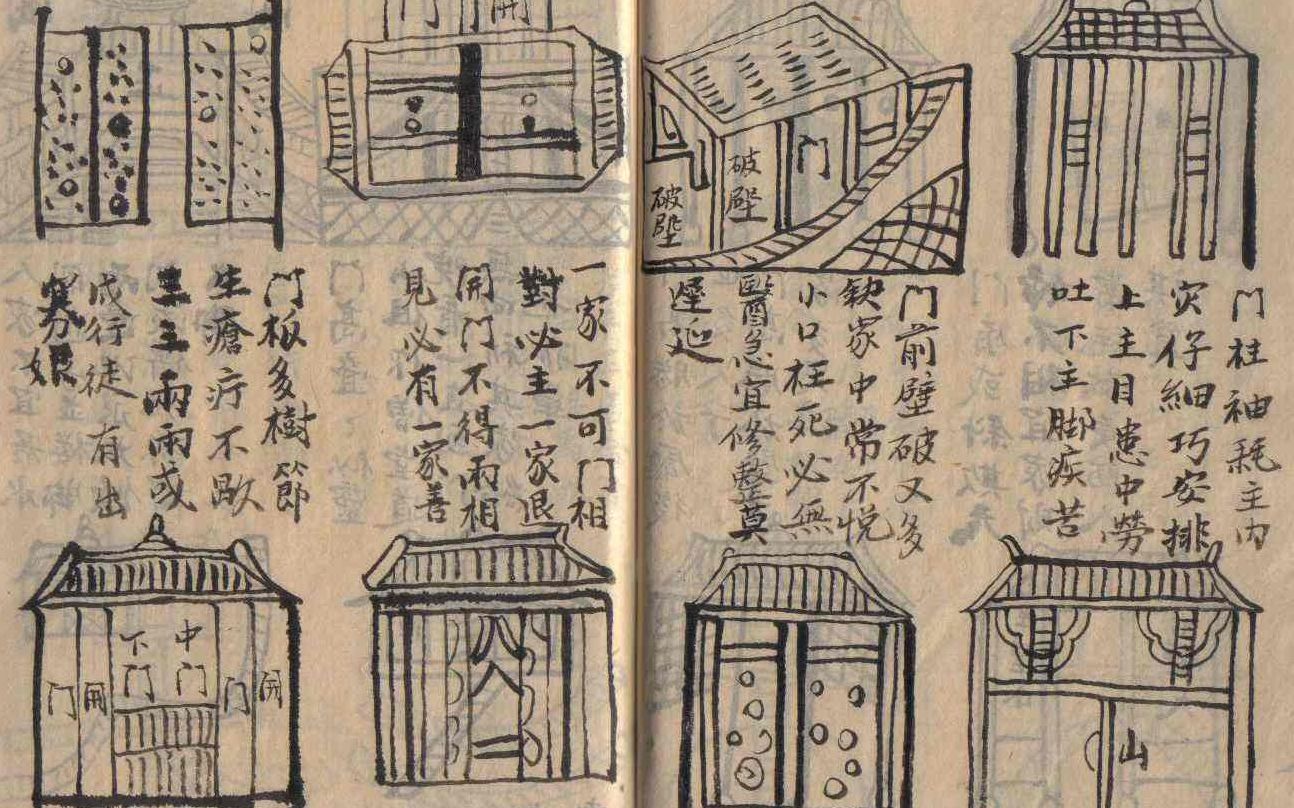 门柱袖耗主内
灾仔細巧安排
上主目患中勞
吐下主脚疾苦
破壁
门
破壁
门前壁破又多
缺家中常不悦
小口枉死必無
醫急宜修整莫
遲延
门
開
一家不可门相
對必主一家退
開门不得兩相
見必有一家善
门板多樹節
生瘡疔不歇
三主兩兩或
成行徒有出
山
八
人
二
中门
下门
開
门
開
门